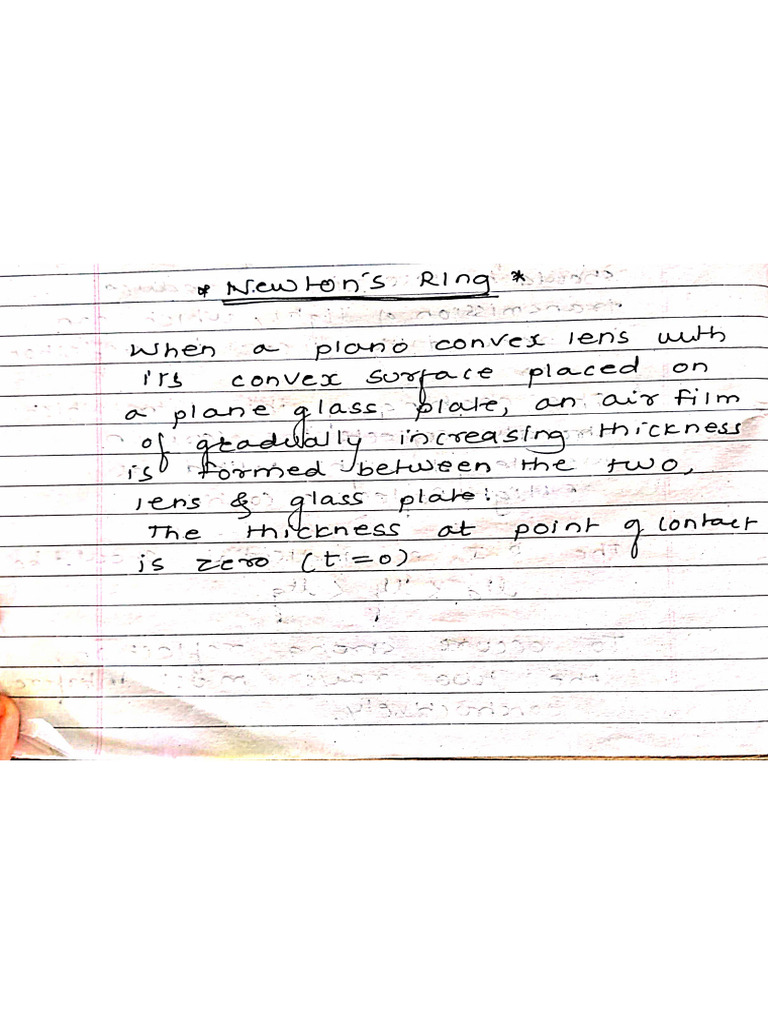 * Newton's Ring *
When a plano convex lens with
its convex surface placed on
a plane glass plate, an air film
of gradually increasing thickness
is formed between the two,
lens & glass plate.
The thickness at point of contact
is zero (t=0)